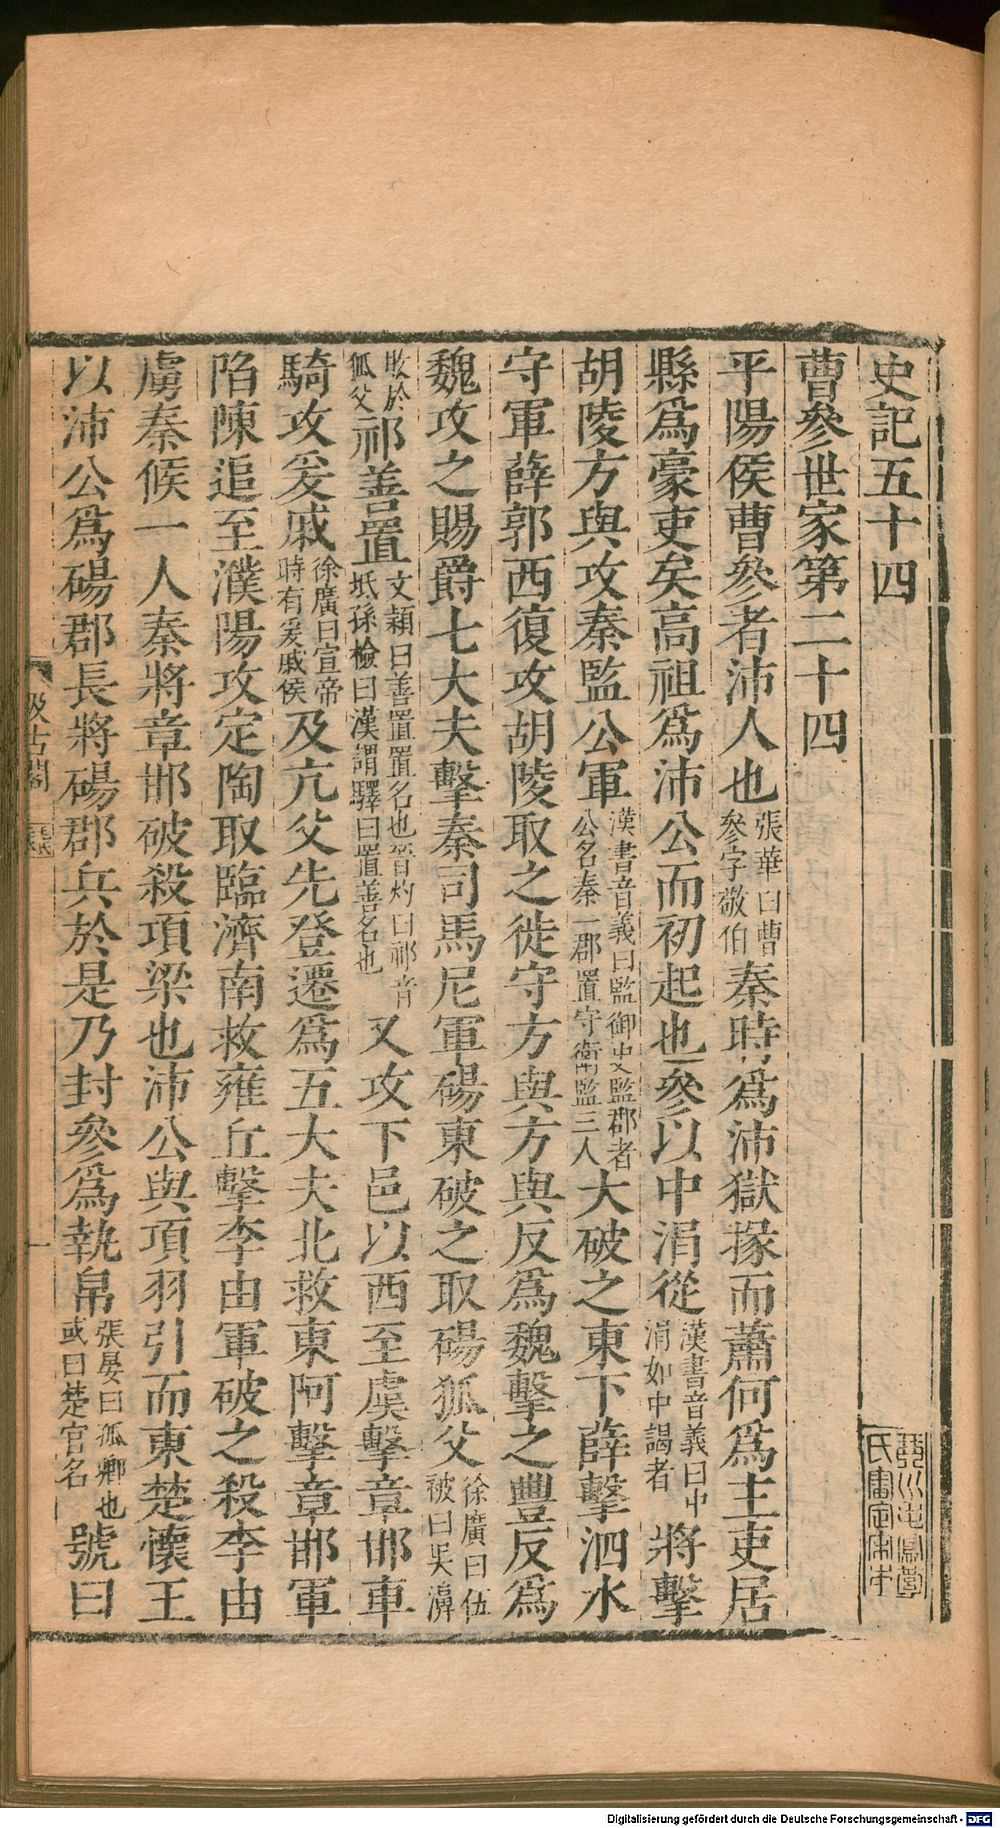 史記五十四
曹參世家第二十四
平陽侯曹參者沛人也張華曰曹參字敬伯秦時爲沛獄掾而蕭何爲主吏居
縣爲豪吏矣高祖爲沛公而初起也參以中涓從漢書音義曰中涓如中謁者將擊
胡陵方與攻秦監公軍漢書音義曰監御史監郡者公名秦一郡置守衛監三人大破之東下薛擊泗水
守軍薛郭西復攻胡陵取之徙守方與方與反爲魏擊之豐反爲
魏攻之賜爵七大夫擊秦司馬尼軍碭東破之取碭狐父徐廣曰伍被曰吳濞
敗於狐父祁善置文穎曰善置置名也晉灼曰祁音坻孫檢曰漢謂驛曰置善名也又攻下邑以西至虞擊章邯車
騎攻爰戚徐廣曰宣帝時有爰戚侯及亢父先登遷爲五大夫北救東阿擊章邯軍
陷陳追至濮陽攻定陶取臨濟南救雍丘擊李由軍破之殺李由
虜秦候一人秦將章邯破殺項梁也沛公與項羽引而東楚懷王
以沛公爲碭郡長將碭郡兵於是乃封參爲執帛張晏曰孤卿也或曰楚官名號曰
汲古閣
毛氏
一
Digitalisierung gefördert durch die Deutsche Forschungsgemeinschaft - DFG